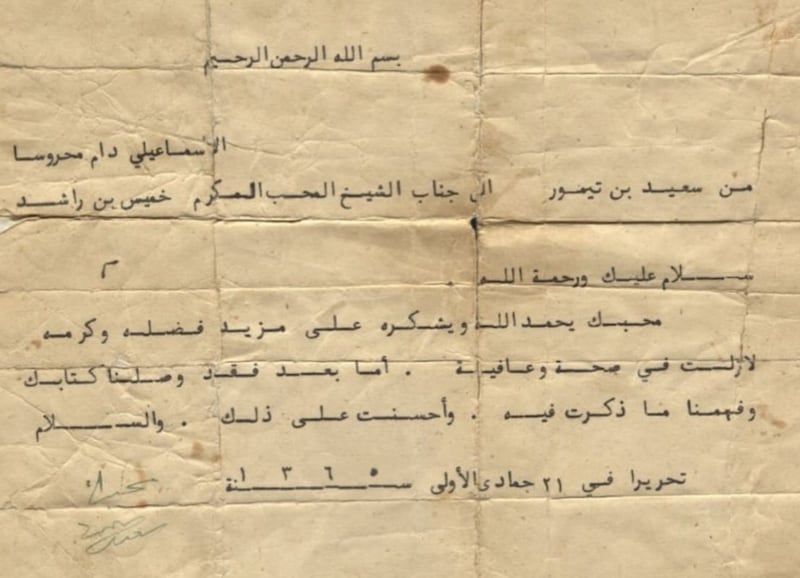 بسم الله الرحمن الرحيم
الأسماعيلي دام محروسا
من سعيد بن تيمور الى جناب الشيخ المحب المكرم خميس بن راشد
سـلام عليك ورحمة الله .
محبك يحمد الله ويشكره على مزيد فضله وكرمه
لازلت في صحة وعافية . أما بعد فقد وصلنا كتابك
وفهمنا ما ذكرت فيه . وأحسنت على ذلك . والسلام
تحريرا في ٢١ جمادى الأولى سنة ١٣٦٥